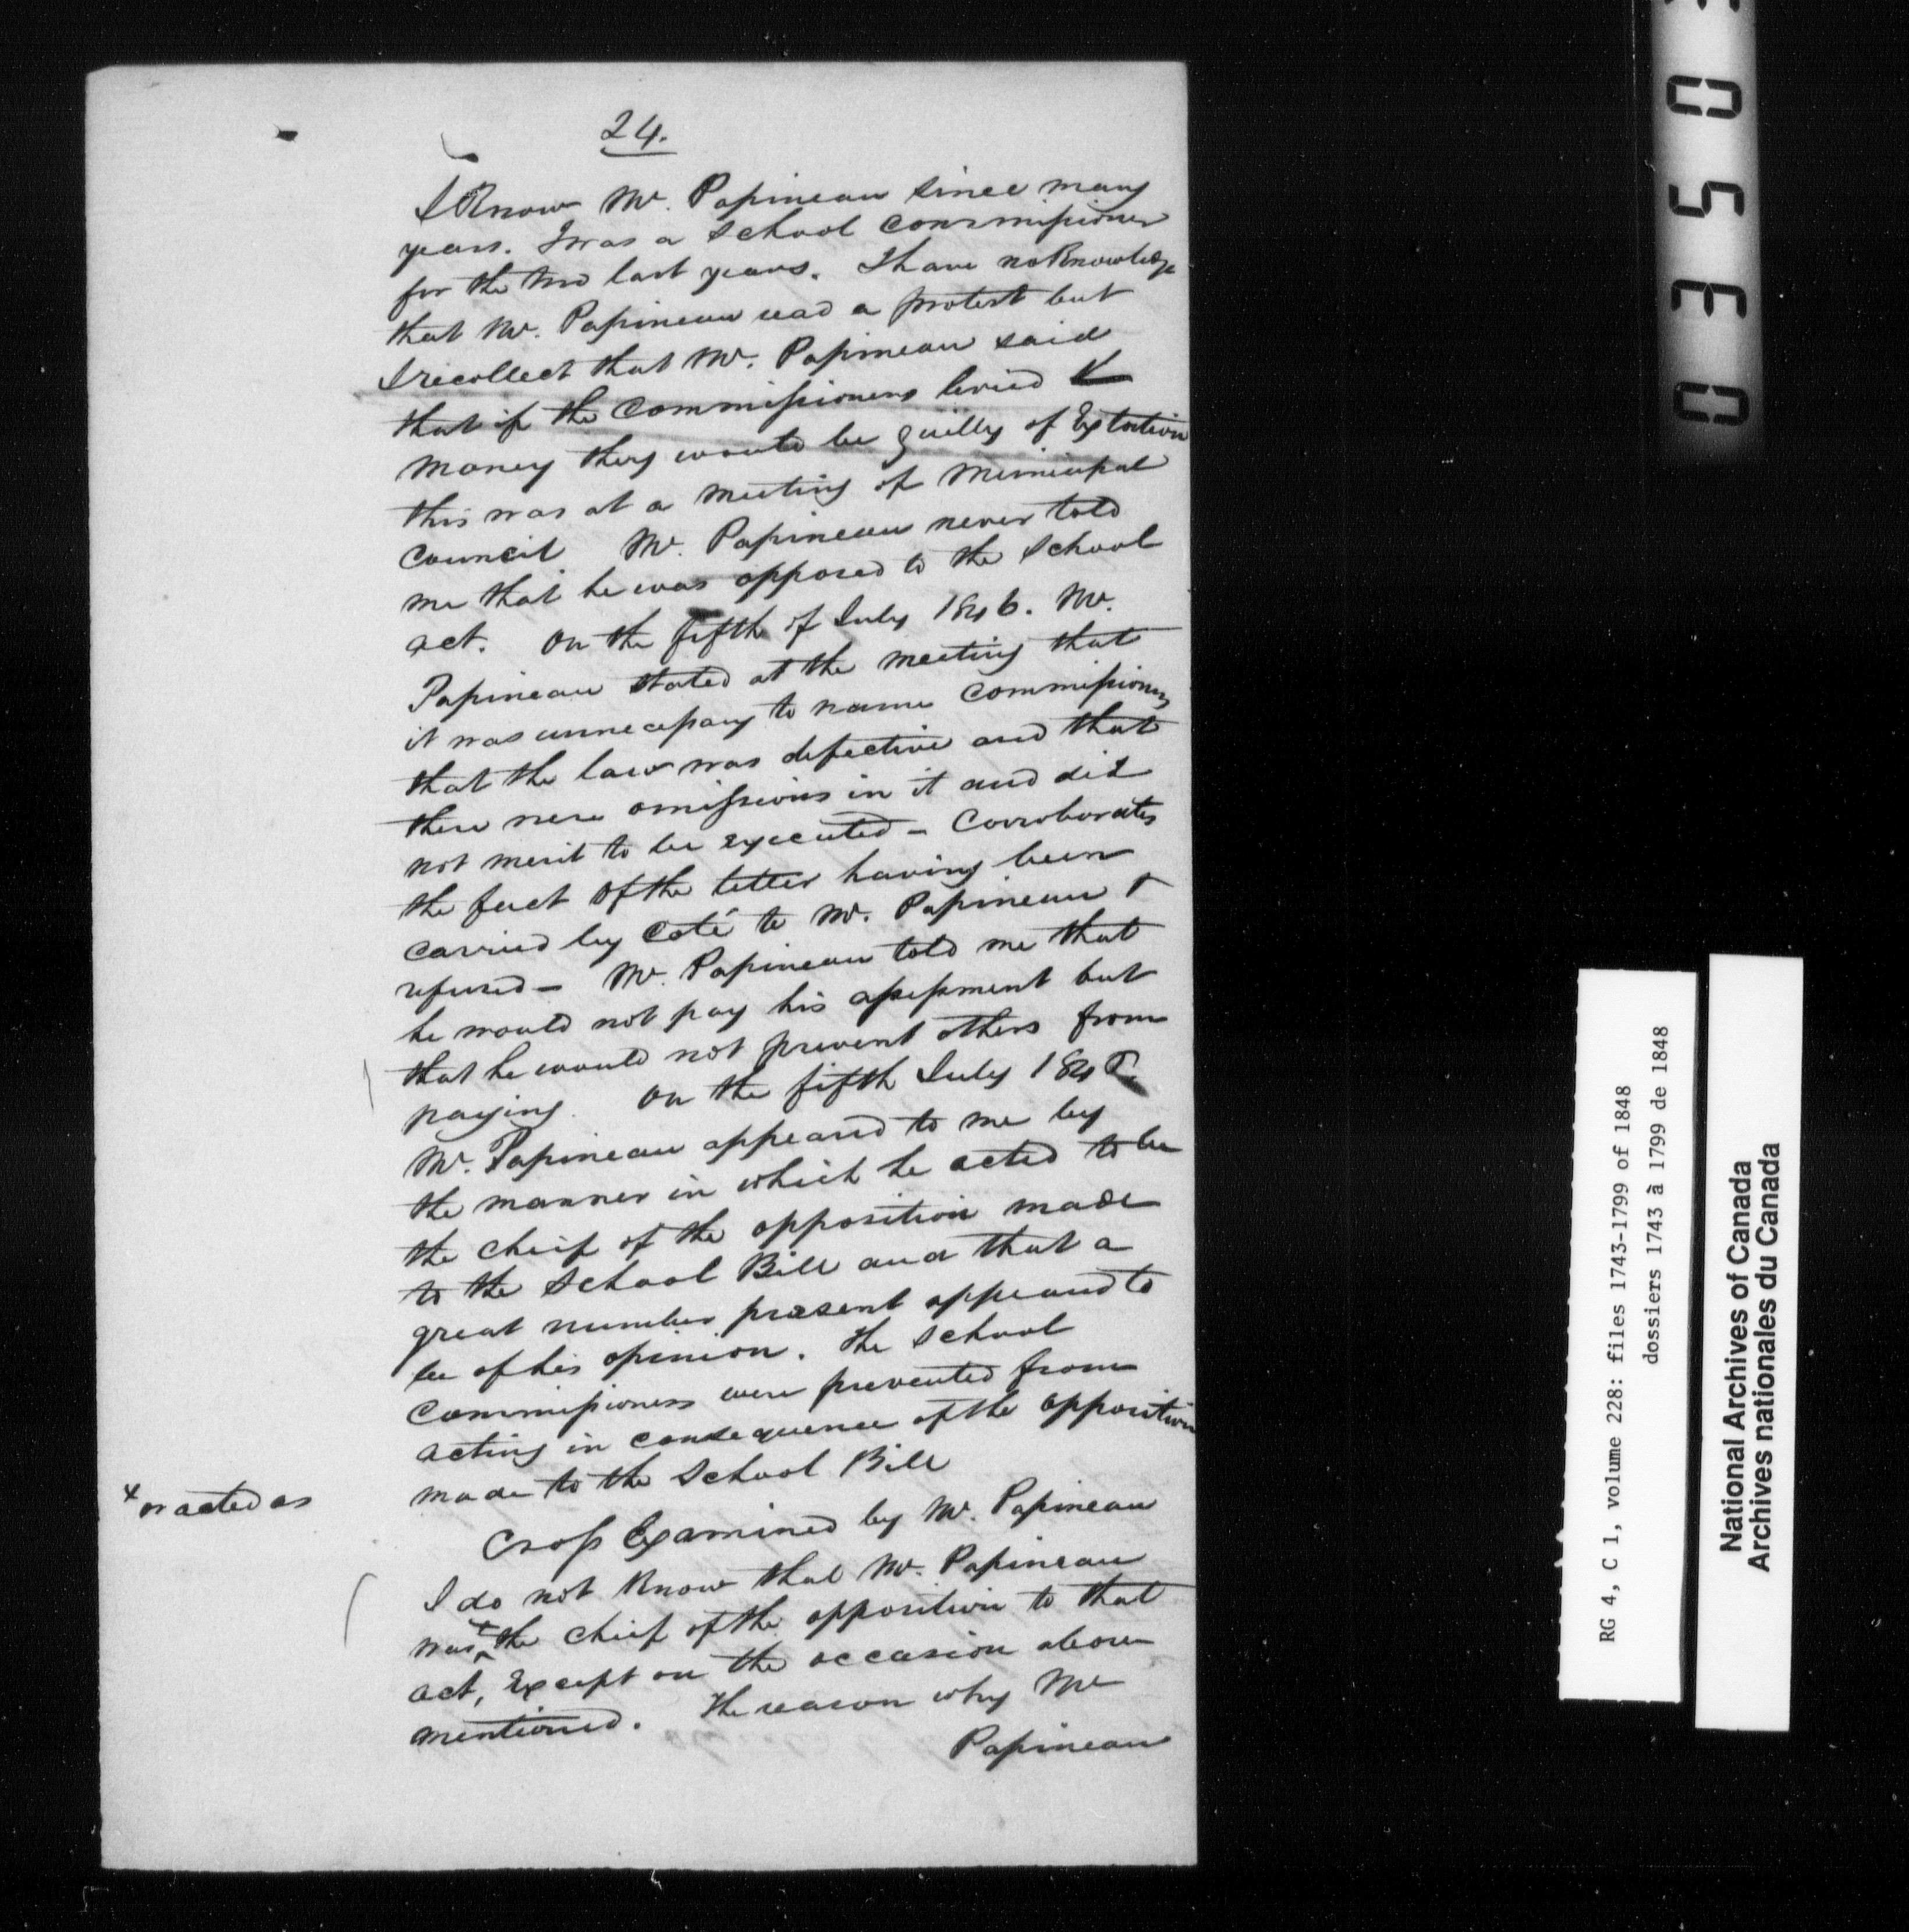 24.
I Know Mr. Papineau since many
years. I was a School Commissioner
for the two last years. I have no Knowledge
that Mr. Papineau read a protest but
I recollect that Mr. Papineau said
that if the Commissioners levied
money they would be guilty of Extortion
this was at a meeting of Municipal
Council Mr. Papineau never told
me that he was opposed to the School
act. On the fifth of July 1846. Mr.
Papineau stated at the meeting that
it was unnecessary to name Commissioners
that the law was defective and that
there were omissions in it and did
not merit to be executed – Corroborates
the fact of the letter having been
carried by Coté to Mr. Papineau &
refused – Mr. Papineau told me that
he would not pay his assessment but
that he would not prevent others from
paying. On the fifth July 184
Mr. Papineau appeared to me by
the manner in which he acted to be
the cheif of the opposition made
to the School Bill and that a
great number present appeared to
be of his opinion. The School
Commissioners were prevented from
acting in consequence of the opposition
made to the School Bill
Cross Examined by Mr. Papineau
I do not Know that Mr. Papineau
was x the cheif of the opposition to that
x or acted as
act, Except on the occasion above
mentioned. The reason why Mr
Papineau
0350
RG 4, C 1, volume 228: files 1743-1799 of 1848
dossiers 1743 à 1799 de 1848
National Archives of Canada
Archives nationales du Canada